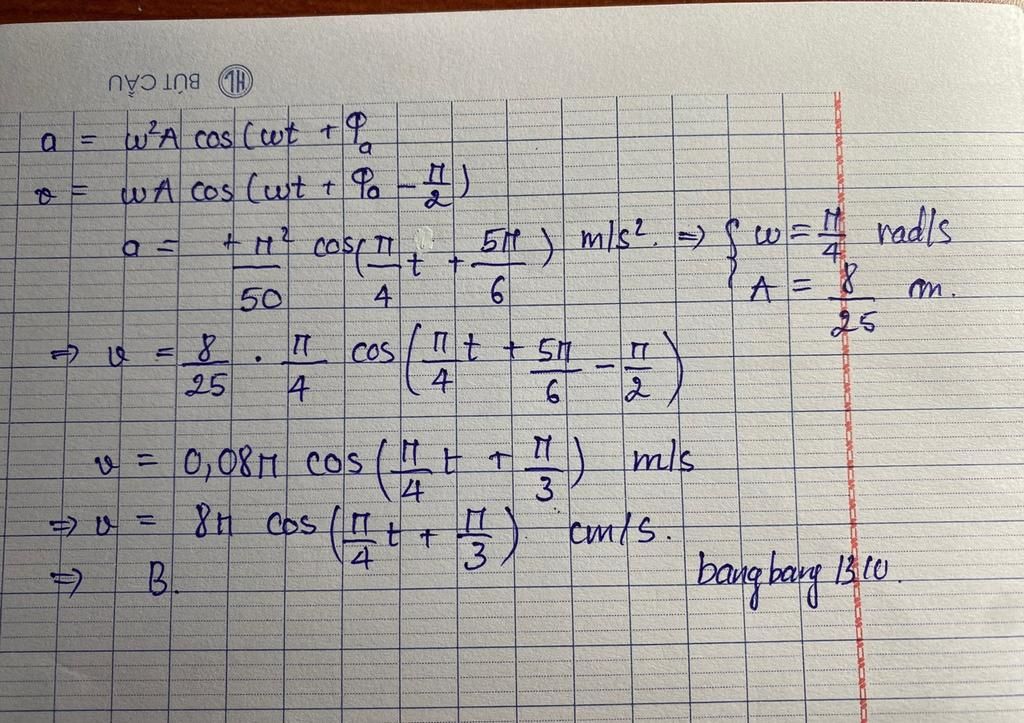 HL BÚT CẦU
a = ω²A cos(ωt + φa
v = ωA cos(ωt + φa - π/2)
a = + π²/50 cos(π/4 t + 5π/6) m/s² ⇒ { ω = π/4 rad/s
A = 8/25 m.
⇒ v = 8/25 . π/4 cos(π/4 t + 5π/6 - π/2)
v = 0,08π cos(π/4 t + π/3) m/s
⇒ v = 8π cos(π/4 t + π/3) cm/s.
⇒ B.
bangbang